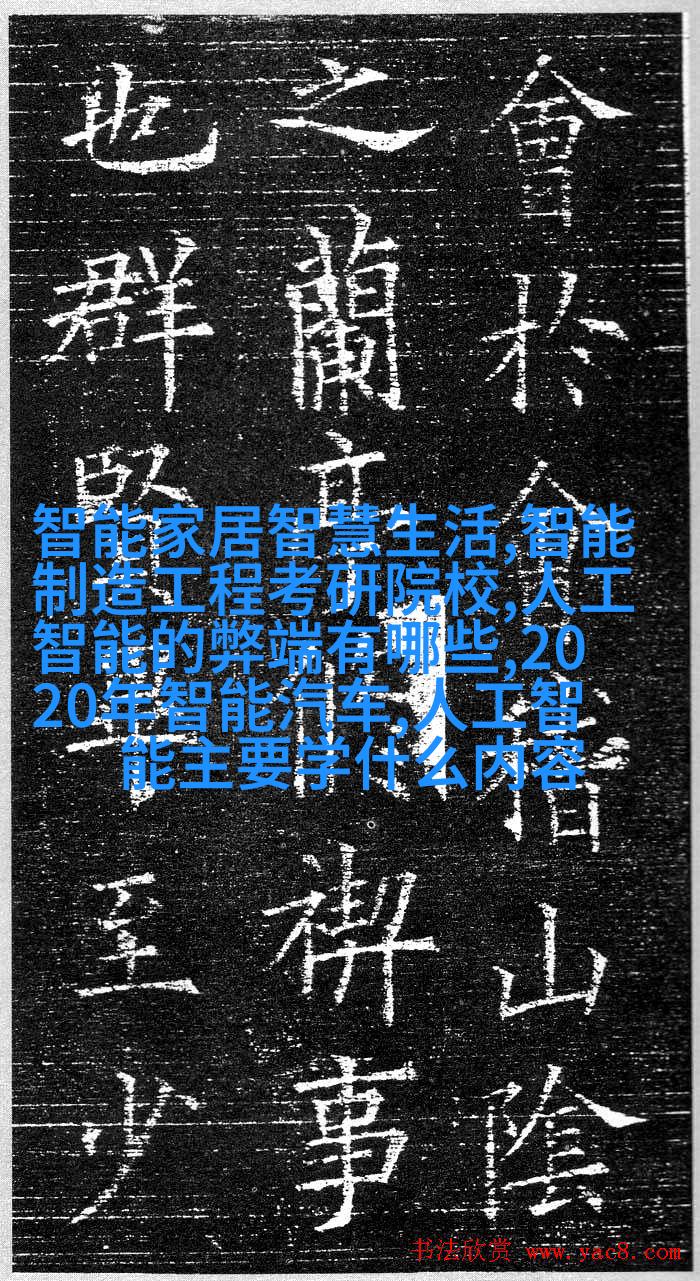 會於會稽山陰
之蘭亭禊事
也群賢至少
智能家居智慧生活,智能
制造工程考研院校,人工
智能的弊端有哪些,20
20年智能汽车,人工智
能主要学什么内容
书法欣赏 www.yac8.com